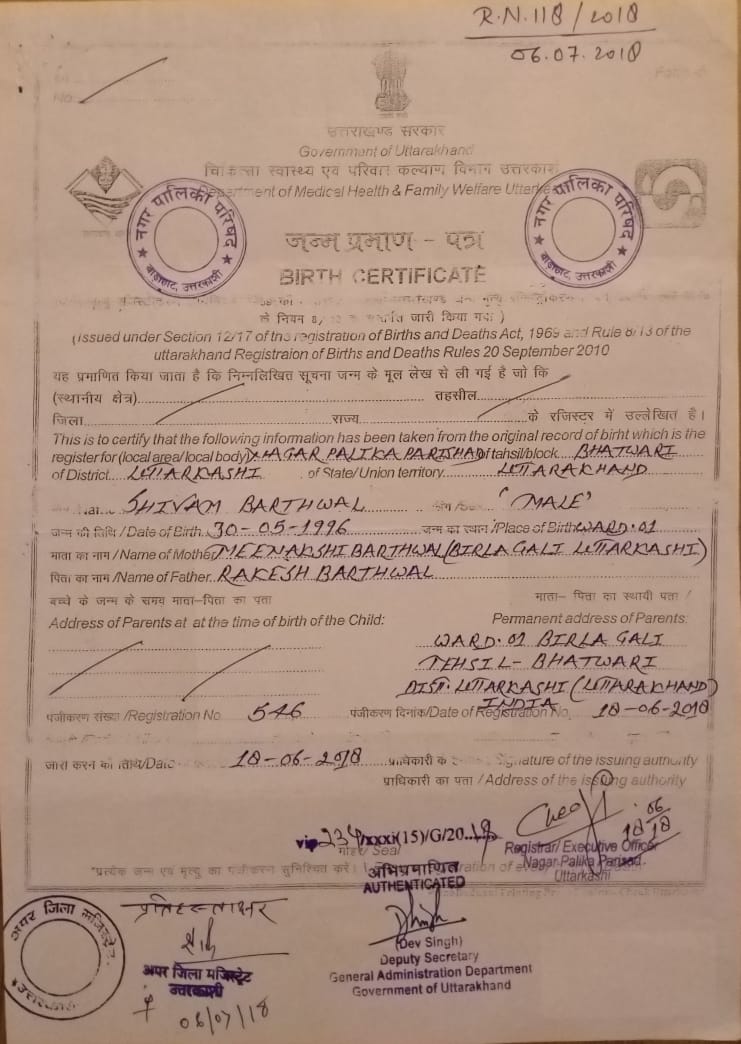 R.N. 118/2018
06.07.2018
No.
उत्तराखण्ड सरकार
Government of Uttarakhand
चिकित्सा स्वास्थ्य एवं परिवार कल्याण विभाग उत्तरकाशी
Department of Medical Health & Family Welfare
नगर पालिका परिषद
बाड़ाहाट, उत्तरकाशी
नगर पालिका परिषद
बाड़ाहाट, उत्तरकाशी
जन्म प्रमाण - पत्र
BIRTH CERTIFICATE
के नियम 8/ जारी किया गया )
(issued under Section 12/17 of the registration of Births and Deaths Act, 1969 and Rule 8/13 of the
uttarakhand Registraion of Births and Deaths Rules 20 September 2010
यह प्रमाणित किया जाता है कि निम्नलिखित सूचना जन्म के मूल लेख से ली गई है जो कि
(स्थानीय क्षेत्र) तहसील
जिला राज्य के रजिस्टर में उल्लेखित है।
This is to certify that the following information has been taken from the original record of birht which is the
register for (local area/ local body) NAGAR PALIKA PARISHAD of tahsil/block BHATWARI
of District UTTARKASHI of State/ Union territory UTTARAKHAND
SHIVAM BARTHWAL 'MALE'
जन्म की तिथि / Date of Birth 30-05-1996 जन्म का स्थान /Place of Birth WARD.01
माता का नाम /Name of Mother MEENAKSHI BARTHWAL (BIRLA GALI UTTARKASHI)
पिता का नाम /Name of Father RAKESH BARTHWAL
बच्चे के जन्म के समय माता-पिता का पता माता- पिता का स्थायी पता /
Address of Parents at at the time of birth of the Child: Permanent address of Parents:
WARD.01 BIRLA GALI
TEHSIL- BHATWARI
DIST. UTTARKASHI (UTTARAKHAND)
INDIA
पंजीकरण संख्या /Registration No 546 पंजीकरण दिनांक/Date of Registration No. 18-06-2018
जारी करने की तिथि/Date 18-06-2018 प्राधिकारी के Signature of the issuing authority
प्राधिकारी का पता / Address of the issuing authority
18/06/18
vip 234/xxxi(15)/G/20 18
मोहर/ Seal
Registrar/ Executive Officer
Nagar Palika Parisad
Uttarkashi
"प्रत्येक जन्म एवं मृत्यु का पंजीकरण सुनिश्चित करें।
अभिप्रमाणित
AUTHENTICATED
(Dev Singh)
Deputy Secretary
General Administration Department
Government of Uttarakhand
प्रतिहस्ताक्षर
अपर जिला मजिस्ट्रेट
उत्तरकाशी
06/07/18
अपर जिला मजिस्ट्रेट
उत्तरकाशी